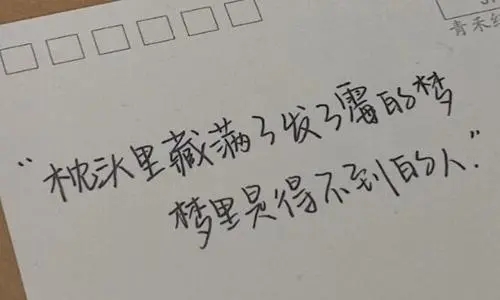 青禾纪
“枕头里藏满了发了霉的梦
梦里是得不到的人.”